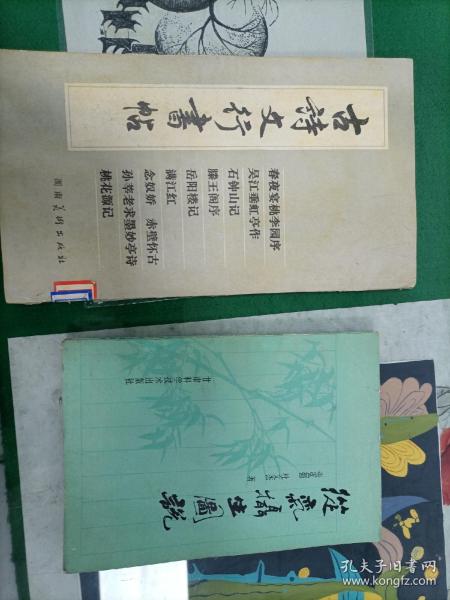 古詩文行書帖
春夜宴桃李园序
吴江垂虹亭作
石钟山记
滕王阁序
岳阳楼记
满江红
念奴娇 赤壁怀古
孙莘老求墨妙亭诗
桃花源记
湖南美术出版社
從氣攝生圖說
著
甘肃科学技术出版社
孔夫子旧书网
www.kongfz.com